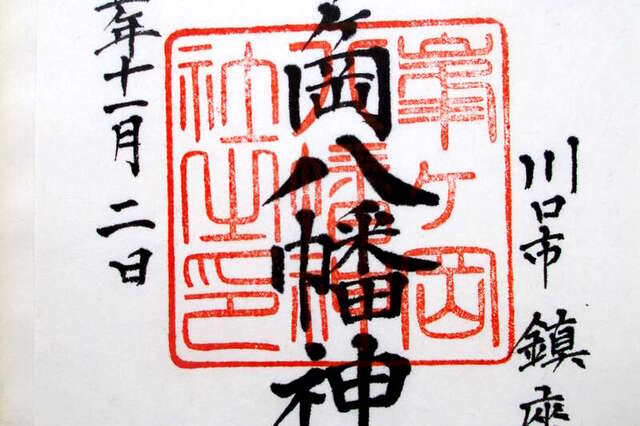 川口市 鎮座
ヶ岡八幡神
峯ヶ岡
八幡神
社之印
年十一月二日